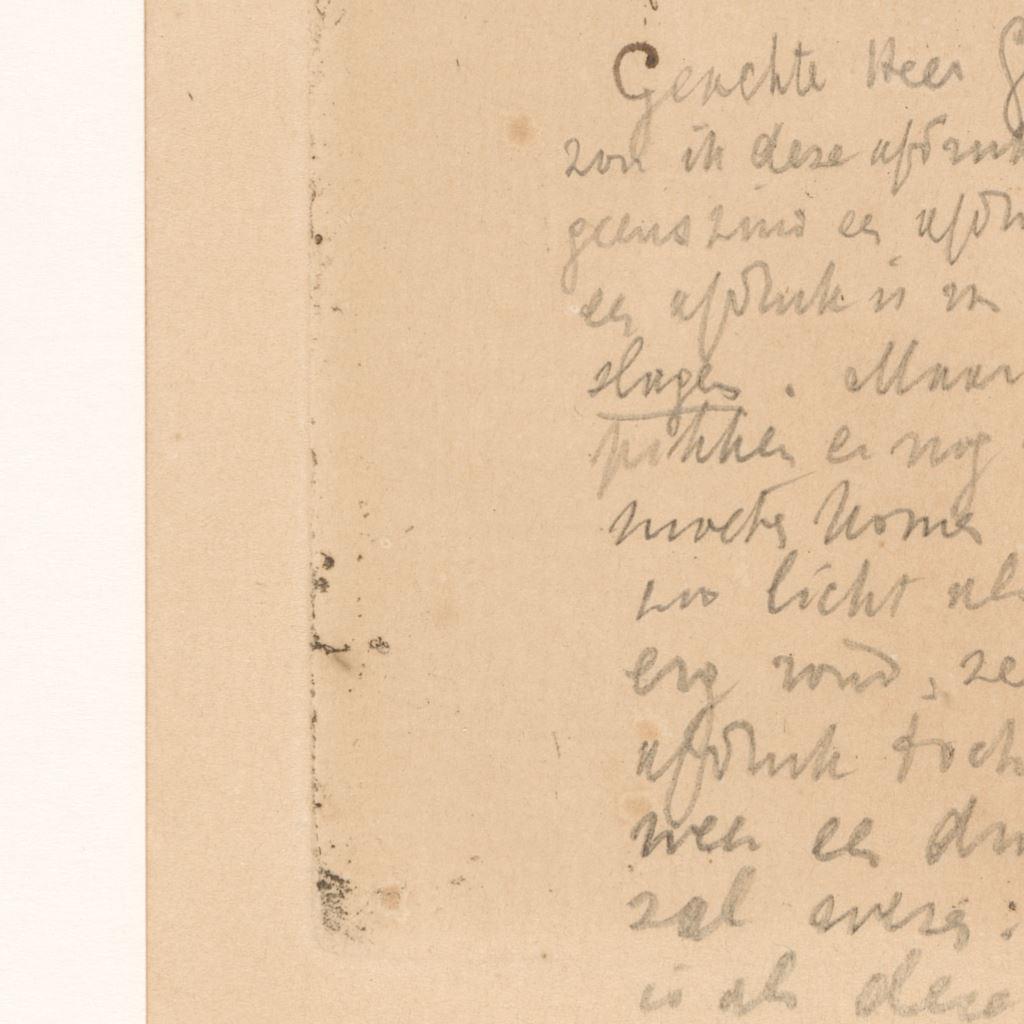 Geachte Heer
zou ik deze afdruk
geenszins een afdru
een afdruk is
slagen. Maar
pikken er nog
moeten komen
zoo licht als
erg rond, ze
afdruk toch
weer een dru
zal wezen:
is als deze